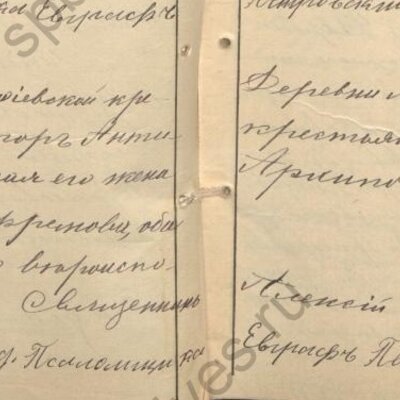 Евграфъ
евской кре-
горъ Анти-
ная его жена
фремова, оба
второиспо-
Священникъ
Псаломщикъ
Петровскій
Деревни
крестья
Архипо
Алексій
Евграфъ По